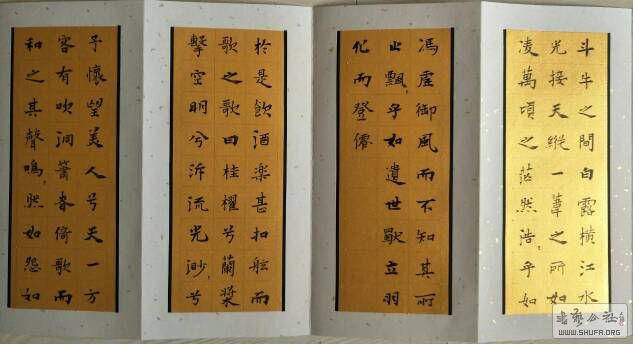 斗牛之間白露橫江水
光接天縱一葦之所如
凌萬頃之茫然浩〻乎如
馮虛御風而不知其所
止飄〻乎如遺世獨立羽
化而登僊
於是飲酒楽甚扣舷而
歌之歌曰桂櫂兮蘭槳
擊空明兮泝流光渺〻兮
予懷望美人兮天一方
客有吹洞簫者倚歌而
和之其聲嗚〻然如怨如
书艺公社
WWW.SHUFA.ORG